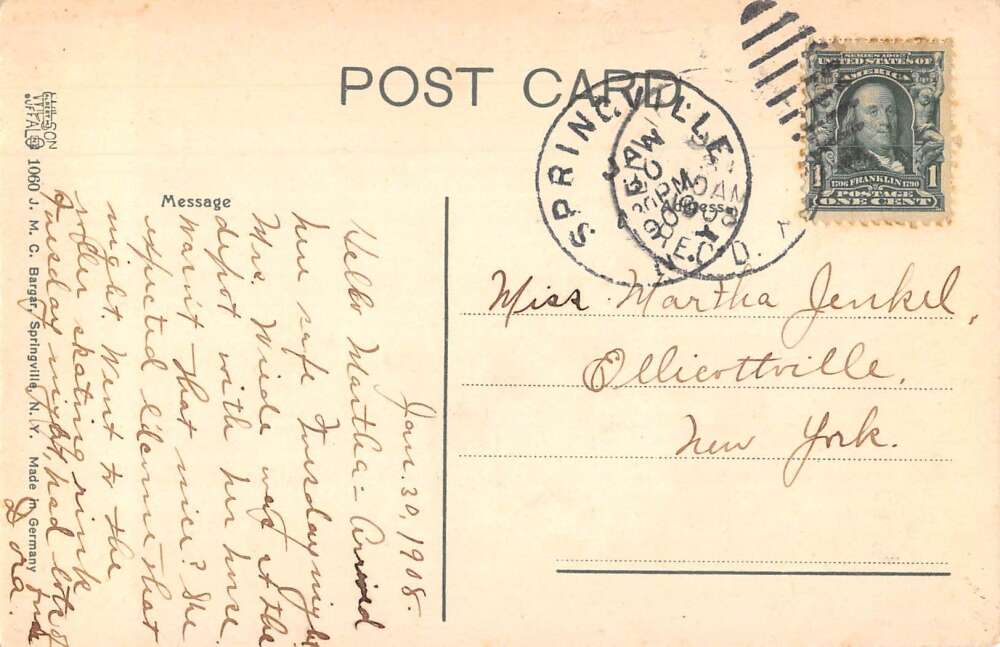 POST CARD
SERIES 1902
UNITED STATES OF
AMERICA
1706 FRANKLIN 1790
POSTAGE
1 ONE CENT 1
SPRINGVILLE
N.Y.
JAN
REC'D.
Message
Jan. 30, 1908.
Hello Martha - Arrived
here safe Tuesday night
Mrs. Wiede was at the
depot with her horse
wasn't that nice? She
expected I'd come that
night. Went to the
roller skating rink
Tuesday night, had lots of
fun
Dora.
Miss Martha Jenkel,
Ellicottville,
New York.
BUFFALO
1060 J. M. C. Bargar, Springville, N. Y. Made in Germany